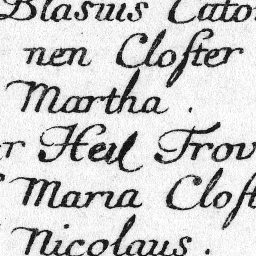 Blasius Cato
nen Closter
Martha .
r Heil Trov
Maria Clost
Nicolaus .